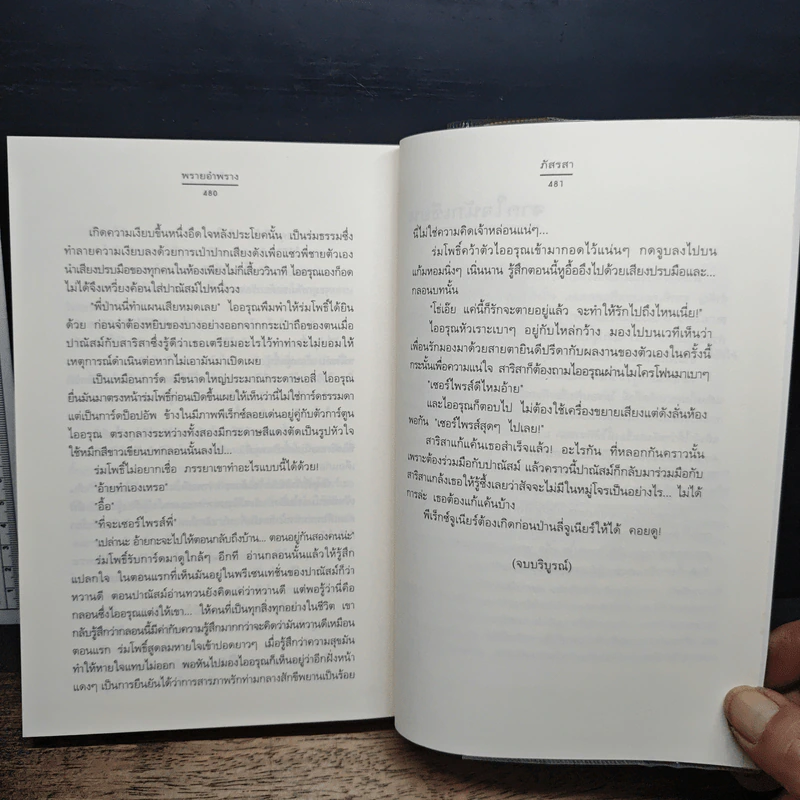 พรายอำพราง
480
เกิดความเงียบขึ้นหนึ่งอึดใจหลังประโยคนั้น เป็นร่มธรรมซึ่ง
ทำลายความเงียบลงด้วยการเป่าปากเสียงดังเพื่อแซวพี่ชายตัวเอง
นำเสียงปรบมือของทุกคนในห้องเพียงไม่กี่เสี้ยววินาที ไออรุณเองก็อด
ไม่ได้จึงเหวี่ยงค้อนใส่ปาณัสม์ไปหนึ่งวง
"พี่ป่านนี่ทำแผนเสียหมดเลย" ไออรุณพึมพำให้ร่มโพธิ์ได้ยิน
ด้วย ก่อนจำต้องหยิบของบางอย่างออกจากกระเป๋าถือของตนเมื่อ
ปาณัสม์กับสาริสาซึ่งรู้ดีว่าเธอเตรียมอะไรไว้ทำท่าจะไม่ยอมให้
เหตุการณ์ดำเนินต่อหากไม่เอามันมาเปิดเผย
เป็นเหมือนการ์ด มีขนาดใหญ่ประมาณกระดาษเอสี่ ไออรุณ
ยื่นมันมาตรงหน้าร่มโพธิ์ก่อนเปิดขึ้นเผยให้เห็นว่านี่ไม่ใช่การ์ดธรรมดา
แต่เป็นการ์ดป็อปอัพ ข้างในมีภาพพีเร็กซ์ลอยเด่นอยู่คู่กับตัวการ์ตูน
ไออรุณ ตรงกลางระหว่างทั้งสองมีกระดาษสีแดงตัดเป็นรูปหัวใจ
ใช้หมึกสีขาวเขียนบทกลอนนั้นลงไป...
ร่มโพธิ์ไม่อยากเชื่อ ภรรยาเขาทำอะไรแบบนี้ได้ด้วย!
"อ้ายทำเองเหรอ"
"อื้อ"
"ที่จะเซอร์ไพรส์พี่"
"เปล่านะ อ้ายกะจะไปให้ตอนกลับถึงบ้าน... ตอนอยู่กันสองคนน่ะ"
ร่มโพธิ์รับการ์ดมาดูใกล้ๆ อีกที อ่านกลอนนั้นแล้วให้รู้สึก
แปลกใจ ในตอนแรกที่เห็นมันอยู่ในพรีเซนเทชั่นของปาณัสม์ก็ว่า
หวานดี ตอนปาณัสม์อ่านทวนยังคิดแค่ว่าหวานดี แต่พอรู้ว่านี่คือ
กลอนซึ่งไออรุณแต่งให้เขา... ให้คนที่เป็นทุกสิ่งทุกอย่างในชีวิต เขา
กลับรู้สึกว่ากลอนนี้มีค่ากับความรู้สึกมากกว่าจะคิดว่ามันหวานดีเหมือน
ตอนแรก ร่มโพธิ์สูดลมหายใจเข้าปอดยาวๆ เมื่อรู้สึกว่าความสุขมัน
ทำให้หายใจแทบไม่ออก พอหันไปมองไออรุณก็เห็นอยู่ว่าอีกฝั่งหน้า
แดงๆ เป็นการยืนยันได้ว่าการสารภาพรักท่ามกลางสักขีพยานเป็นร้อย
ภัสรสา
481
นี่ไม่ใช่ความคิดเจ้าหล่อนแน่ๆ...
ร่มโพธิ์คว้าตัวไออรุณเข้ามากอดไว้แน่นๆ กดจูบลงไปบน
แก้มหอมนิ่งๆ เนิ่นนาน รู้สึกตอนนี้หูอื้ออึงไปด้วยเสียงปรบมือและ...
กลอนบทนั้น
"โธ่เอ๊ย แค่นี้ก็รักจะตายอยู่แล้ว จะทำให้รักไปถึงไหนเนี่ย!"
ไออรุณหัวเราะเบาๆ อยู่กับไหล่กว้าง มองไปบนเวทีเห็นว่า
เพื่อนรักมองมาด้วยสายตายินดีปรีดากับผลงานของตัวเองในครั้งนี้
กระนั้นเพื่อความแน่ใจ สาริสาก็ต้องถามไออรุณผ่านไมโครโฟนมาเบาๆ
"เซอร์ไพรส์ดีไหมอ้าย"
และไออรุณก็ตอบไป ไม่ต้องใช้เครื่องขยายเสียงแต่ดังลั่นห้อง
พอกัน "เซอร์ไพรส์สุดๆ ไปเลย!"
สาริสาแก้แค้นเธอสำเร็จแล้ว! อะไรกัน ที่หลอกกันคราวนั้น
เพราะต้องร่วมมือกับปาณัสม์ แล้วคราวนี้ปาณัสม์ก็กลับมาร่วมมือกับ
สาริสาแกล้งเธอให้รู้ซึ้งเลยว่าสัจจะไม่มีในหมู่โจรเป็นอย่างไร... ไม่ได้
การล่ะ เธอต้องแก้แค้นบ้าง
พีเร็กซ์จูเนียร์ต้องเกิดก่อนป่านลี่จูเนียร์ให้ได้ คอยดู!
(จบบริบูรณ์)